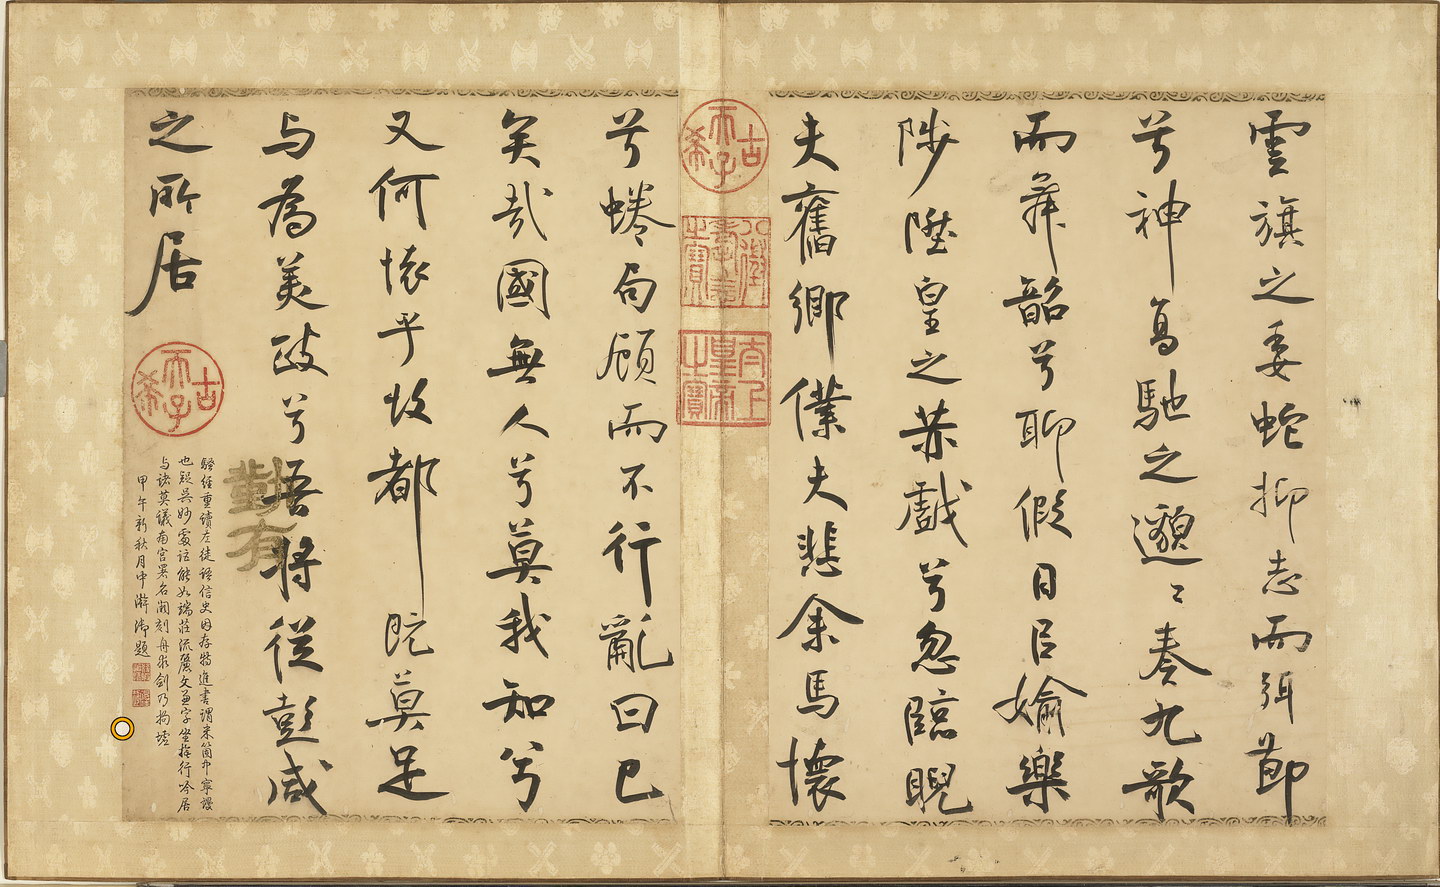 雲旗之委蛇抑志而弭節
兮神高馳之邈〻奏九歌
而舞韶兮聊假日㠯媮樂
陟陞皇之赫戲兮忽臨睨
夫舊鄉僕夫悲余馬懷
古希天子
八徵耄念之寶
太上皇帝之寶
兮蜷局顧而不行亂曰已
矣哉國無人兮莫我知兮
又何懷乎故都既莫足
与為美政兮吾將從彭咸
之所居
古希天子
勤有
騷經重讀左徒語信史因存特進書謂米箇中寧謾
也疑吳妙處詎能如端莊流麗文兼字坐行吟居
与諸莫南宮署名闕刻舟求劍乃拘墟
甲午新秋月中澣御題